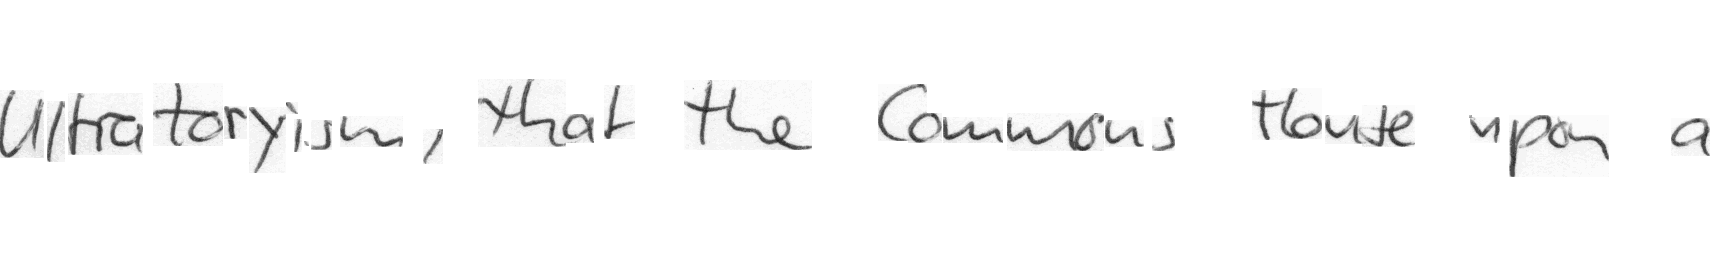 Ultratoryism, that the Commons House upon a